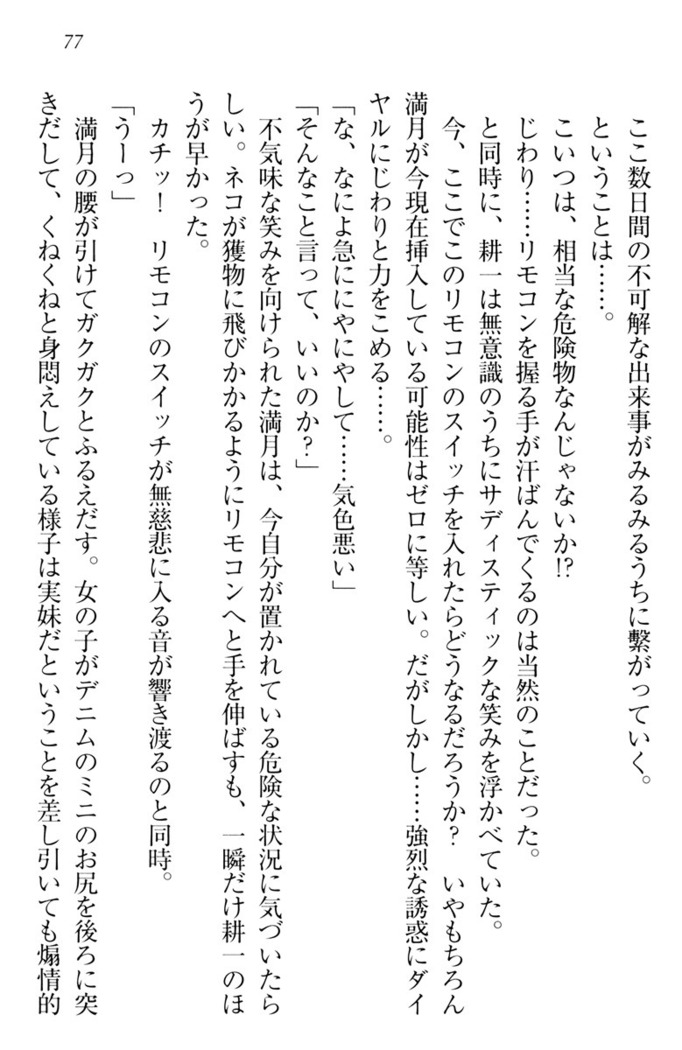 77
ここ数日間の不可解な出来事がみるみるうちに繋がっていく。
ということは……。
こいつは、相当な危険物なんじゃないか!?
じわり……リモコンを握る手が汗ばんでくるのは当然のことだった。
と同時に、耕一は無意識のうちにサディスティックな笑みを浮かべていた。
今、ここでこのリモコンのスイッチを入れたらどうなるだろうか？　いやもちろん
満月が今現在挿入している可能性はゼロに等しい。だがしかし……強烈な誘惑にダイ
ヤルにじわりと力をこめる……。
「な、なによ急ににやにやして……気色悪い」
「そんなこと言って、いいのか？」
不気味な笑みを向けられた満月は、今自分が置かれている危険な状況に気づいたら
しい。ネコが獲物に飛びかかるようにリモコンへと手を伸ばすも、一瞬だけ耕一のほ
うが早かった。
カチッ！　リモコンのスイッチが無慈悲に入る音が響き渡るのと同時。
「うーっ」
満月の腰が引けてガクガクとふるえだす。女の子がデニムのミニのお尻を後ろに突
きだして、くねくねと身悶えしている様子は実妹だということを差し引いても煽情的